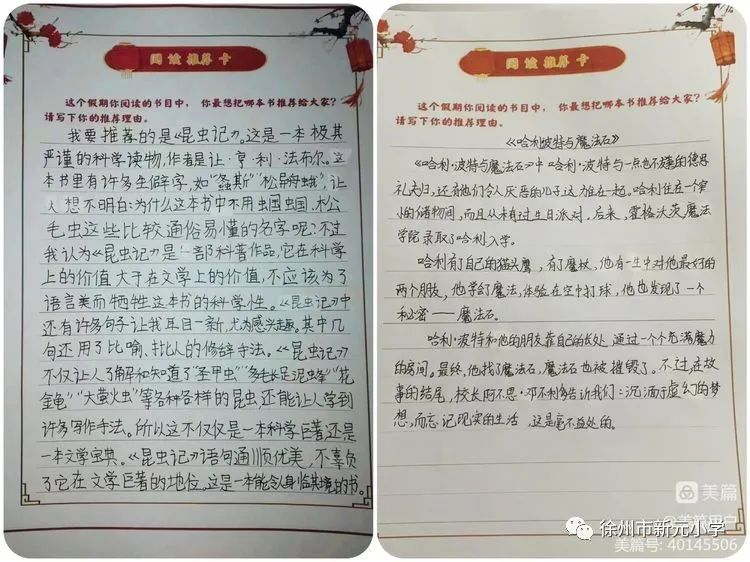 阅读推荐卡
这个假期你阅读的书目中，你最想把哪本书推荐给大家？
请写下你的推荐理由。
我要推荐的是《昆虫记》。这是一本极其
严谨的科学读物，作者是让·亨利·法布尔。这
本书里有许多生僻字，如“螽斯”“松异舟蛾”，让
人想不明白：为什么这本书中不用虫国虫国、松
毛虫这些比较通俗易懂的名字呢？不过
我认为《昆虫记》是一部科普作品，它在科学
上的价值大于在文学上的价值，不应该为了
语言美而牺牲这本书的科学性。《昆虫记》中
还有许多句子让我耳目一新，尤为感兴趣。其中几
句还用了比喻、拟人的修辞手法。《昆虫记》
不仅让人了解和知道了“圣甲虫”“多毛长足泥蜂”“花
金龟”“大萤火虫”等各种各样的昆虫，还能让人学到
许多写作手法。所以这不仅仅是一本科学巨著还是
一本文学宝典。《昆虫记》语句通顺优美，不辜负
了它在文学巨著的地位。这是一本能令人身临其境的书。
阅读推荐卡
这个假期你阅读的书目中，你最想把哪本书推荐给大家？
请写下你的推荐理由。
《哈利波特与魔法石》
《哈利·波特与魔法石》中哈利·波特与一点也不懂的德思
礼夫妇，还有他们令人厌恶的儿子达力住在一起。哈利住在一个窄
小的储物间，而且从未有过生日派对，后来，霍格沃茨魔法
学院录取了哈利入学。
哈利有了自己的猫头鹰，有了魔杖，他有一生中对他最好的
两个朋友，他学会了魔法，体验在空中打球，他也发现了一个
秘密——魔法石。
哈利·波特和他的朋友靠自己的长处，通过一个个充满魔力
的房间。最终，他找了魔法石，魔法石也被摧毁了。不过在故
事的结尾，校长阿不思·邓不利多告诉我们：沉湎于虚幻的梦
想，而忘记现实的生活，这是毫不益处的。
美篇
美篇用户
徐州市新元小学
美篇号：40145506